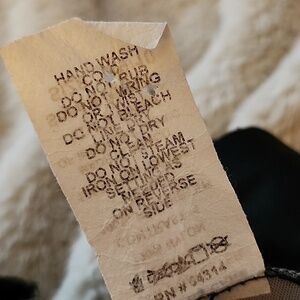 HAND WASH
COLD
DO NOT RUB
DO NOT WRING
OR
DO NOT BLEACH
LINE DRY
DO NOT DRY
CLEAN
DO NOT STEAM
IRON ON LOWEST
SETTING AS
NEEDED
ON REVERSE
SIDE
RN # 54314